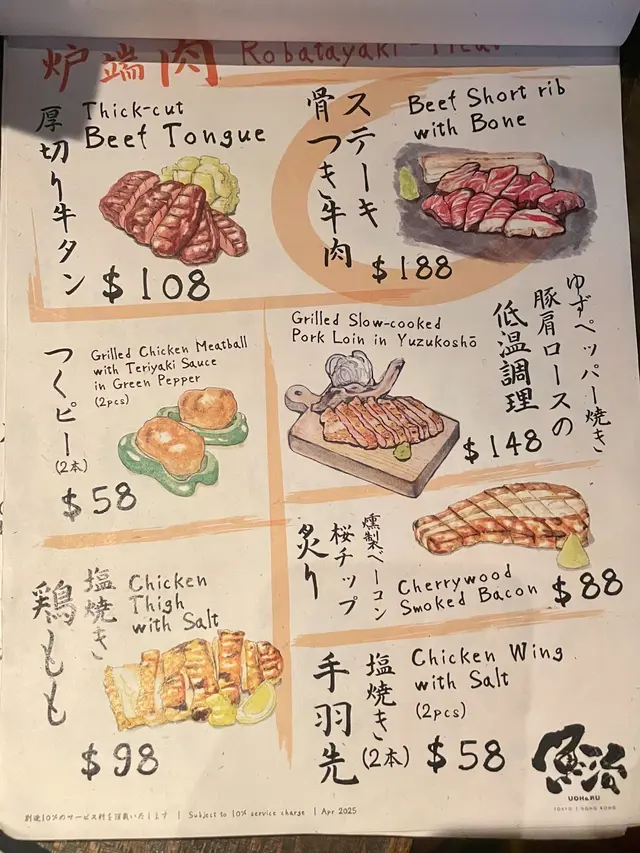 炉端肉 Robatayaki - Meat
厚切り牛タン
Thick-cut
Beef Tongue
$108
骨つき牛肉
ステーキ
Beef Short rib
with Bone
$188
つくピー(2本)
Grilled Chicken Meatball
with Teriyaki Sauce
in Green Pepper
(2pcs)
$58
Grilled Slow-cooked
Pork Loin in Yuzukoshō
ゆずペッパー焼き
豚肩ロースの
低温調理
$148
燻製ベーコン
桜チップ
炙り
Cherrywood
Smoked Bacon
$88
塩焼き
鶏もも
Chicken
Thigh
with Salt
$98
手羽先
塩焼き(2本)
Chicken Wing
with Salt
(2pcs)
$58
魚治
UOHARU
TOKYO | HONG KONG
別途10%のサービス料を頂戴いたします | Subject to 10% service charge | Apr 2025